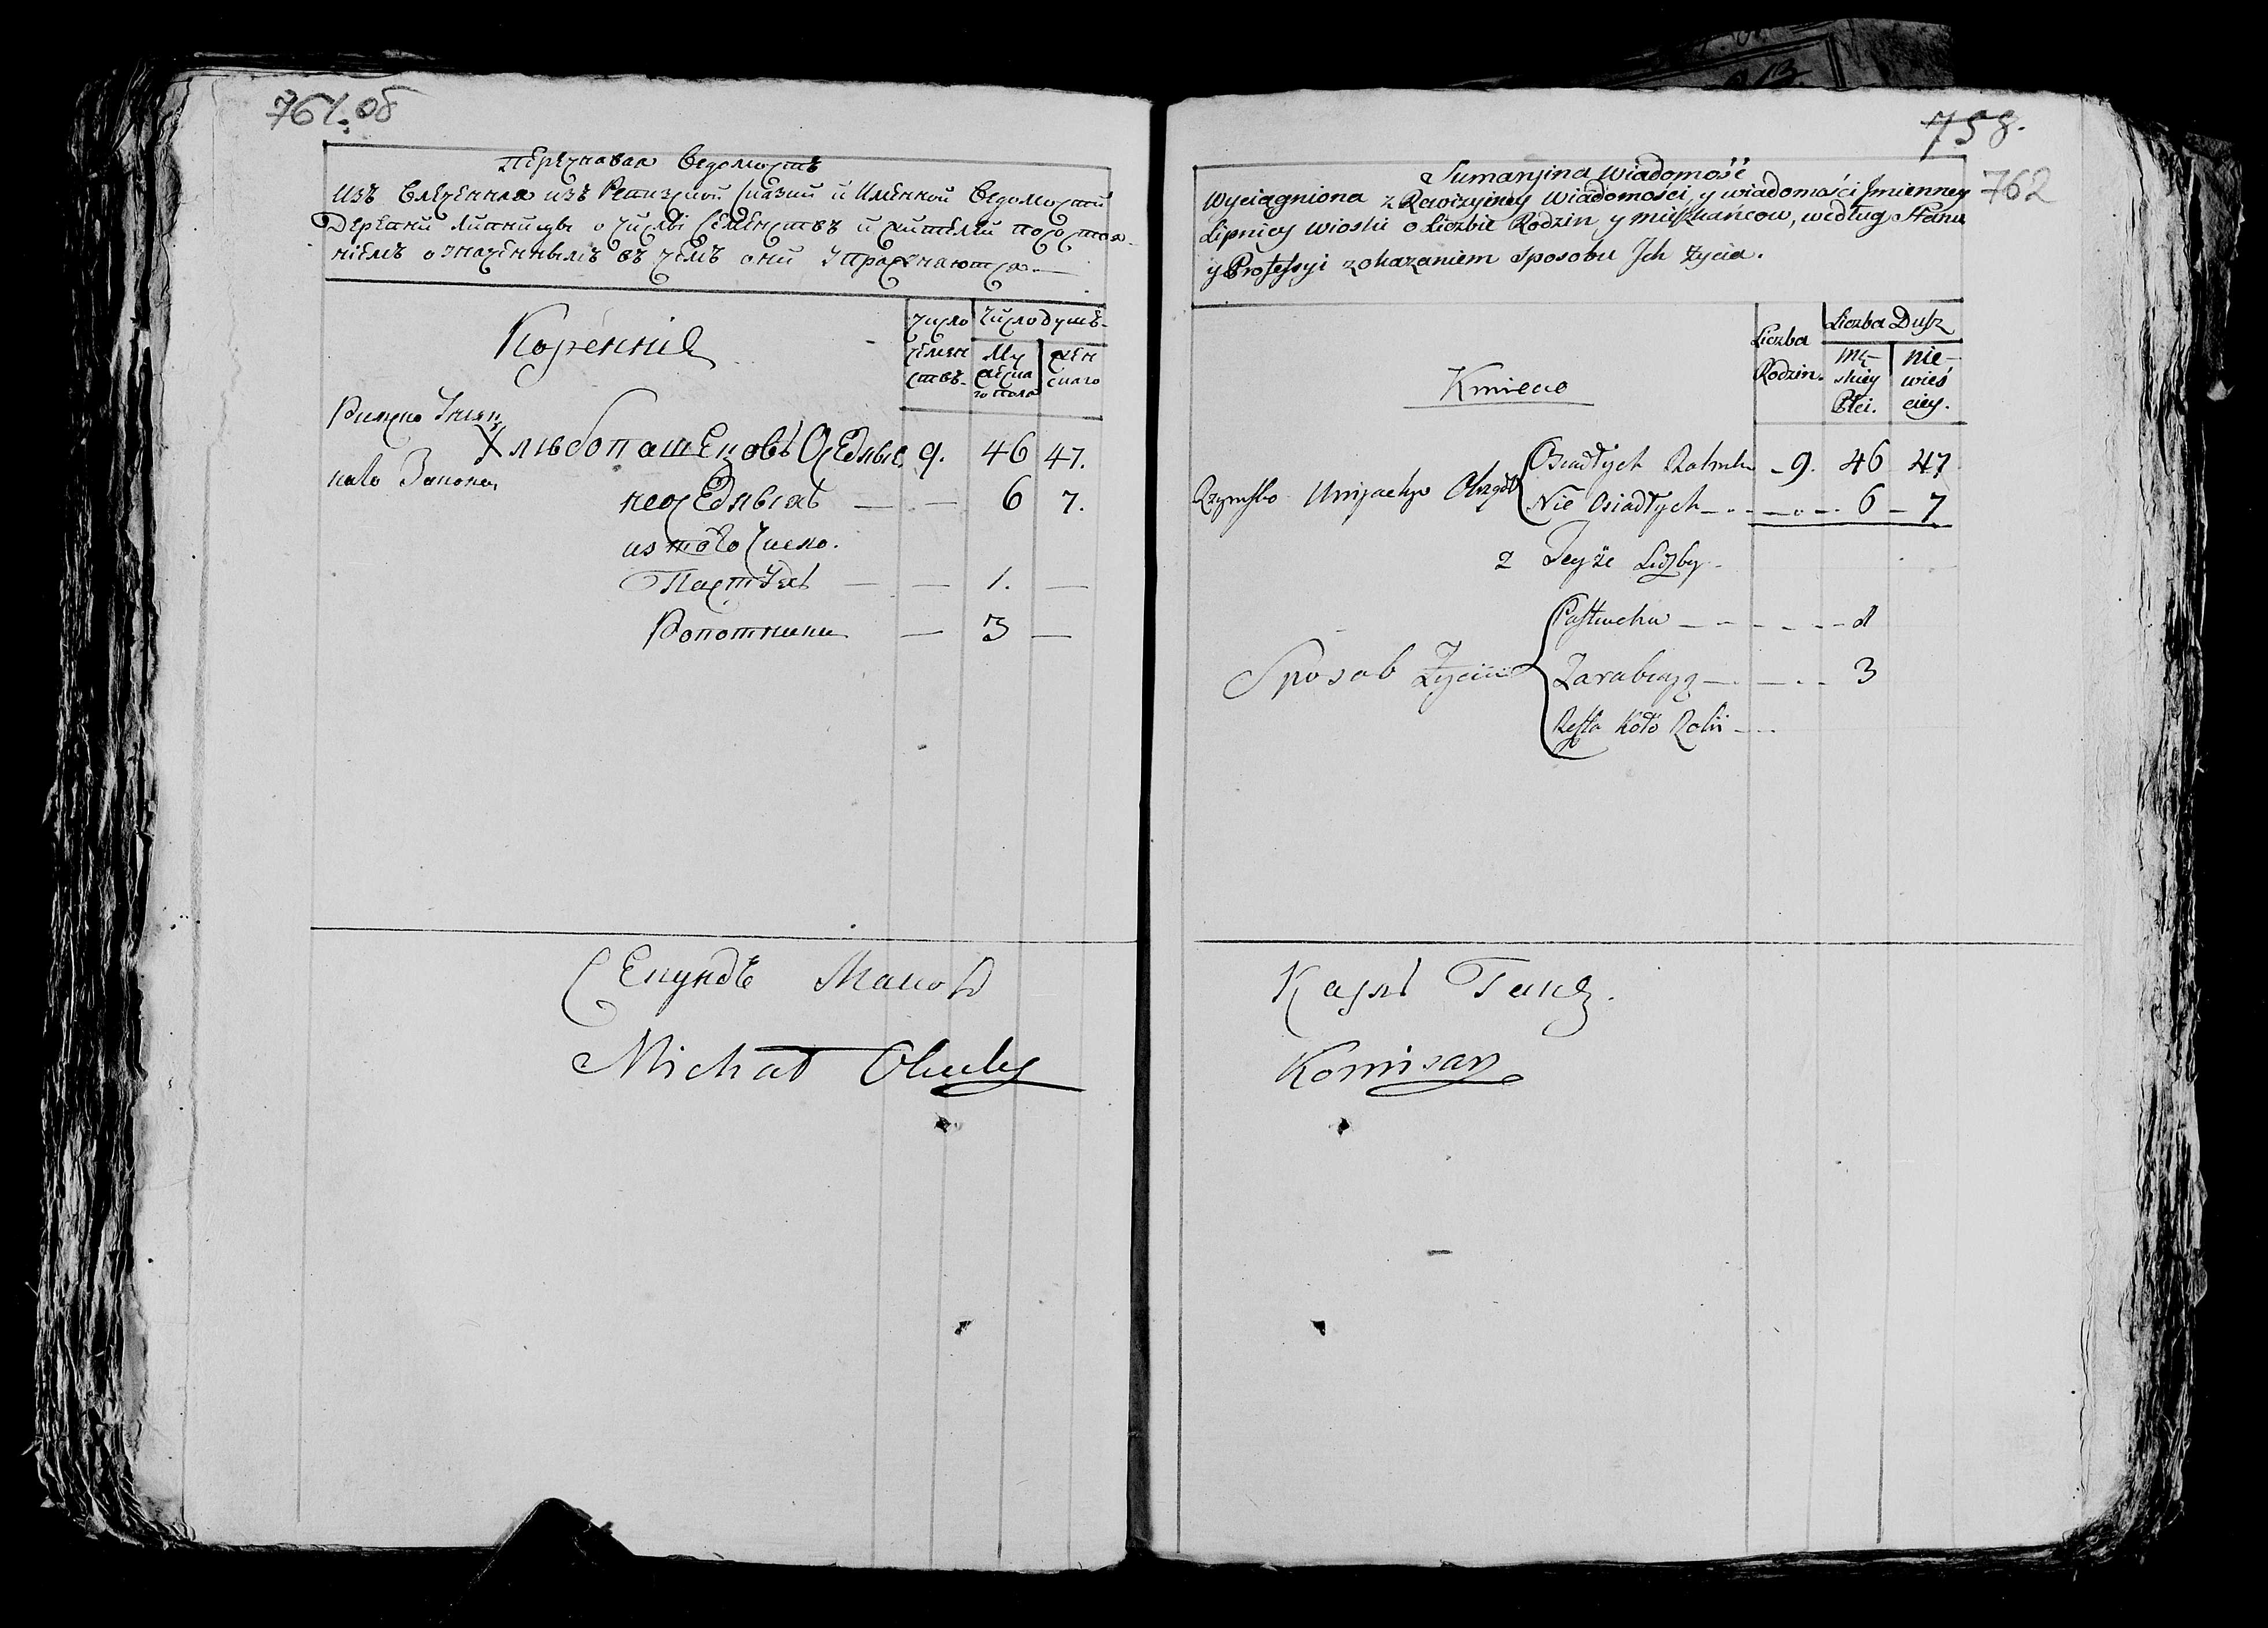 761. об
Перечневая Ведомость
Извлеченная из Ревизской Сказки и Именной Ведомости
Деревни Липницы о числе Семейств и жителей по состоя-
нием означенным в чем они упражняются.
Число
Число душъ
семей
ствъ
Му
жска
го пола
жен
скаго
Коренние
Римско Униц
каго Закона
Хлѣбопашецовъ Оседлых 9. 46 47.
неоседлыхъ — — 6 7.
из того Числа.
Пастухъ — — 1. —
Роботники — 3 —
Секундъ Маиоръ
Michał
758.
762
Sumaryina Wiadomość
Wyciągniona z Rewizyiney Wiadomości y wiadomości Jmienney
Lipnicy wioski o Liczbie Rodzin y mieszkańcow, według Stanu
y Professyi z okazaniem sposobu Jch Życia.
Liczba
Rodzin.
Liczba Dusz
mę-
skiey
Płci.
nie-
wieś
ciey.
Kmiecie
Rzymsko Uniackgo Obrządku
Osiadłych Rolnik - 9. 46 47
Nie Osiadłych - - - 6 - 7
z Teyże Liczby -
Sposob Życia
Pastucha - - - - - 1
Zarabiaią - - - - 3
Reszta koło Roli - - -
Карлъ Ганз.
Komisarz